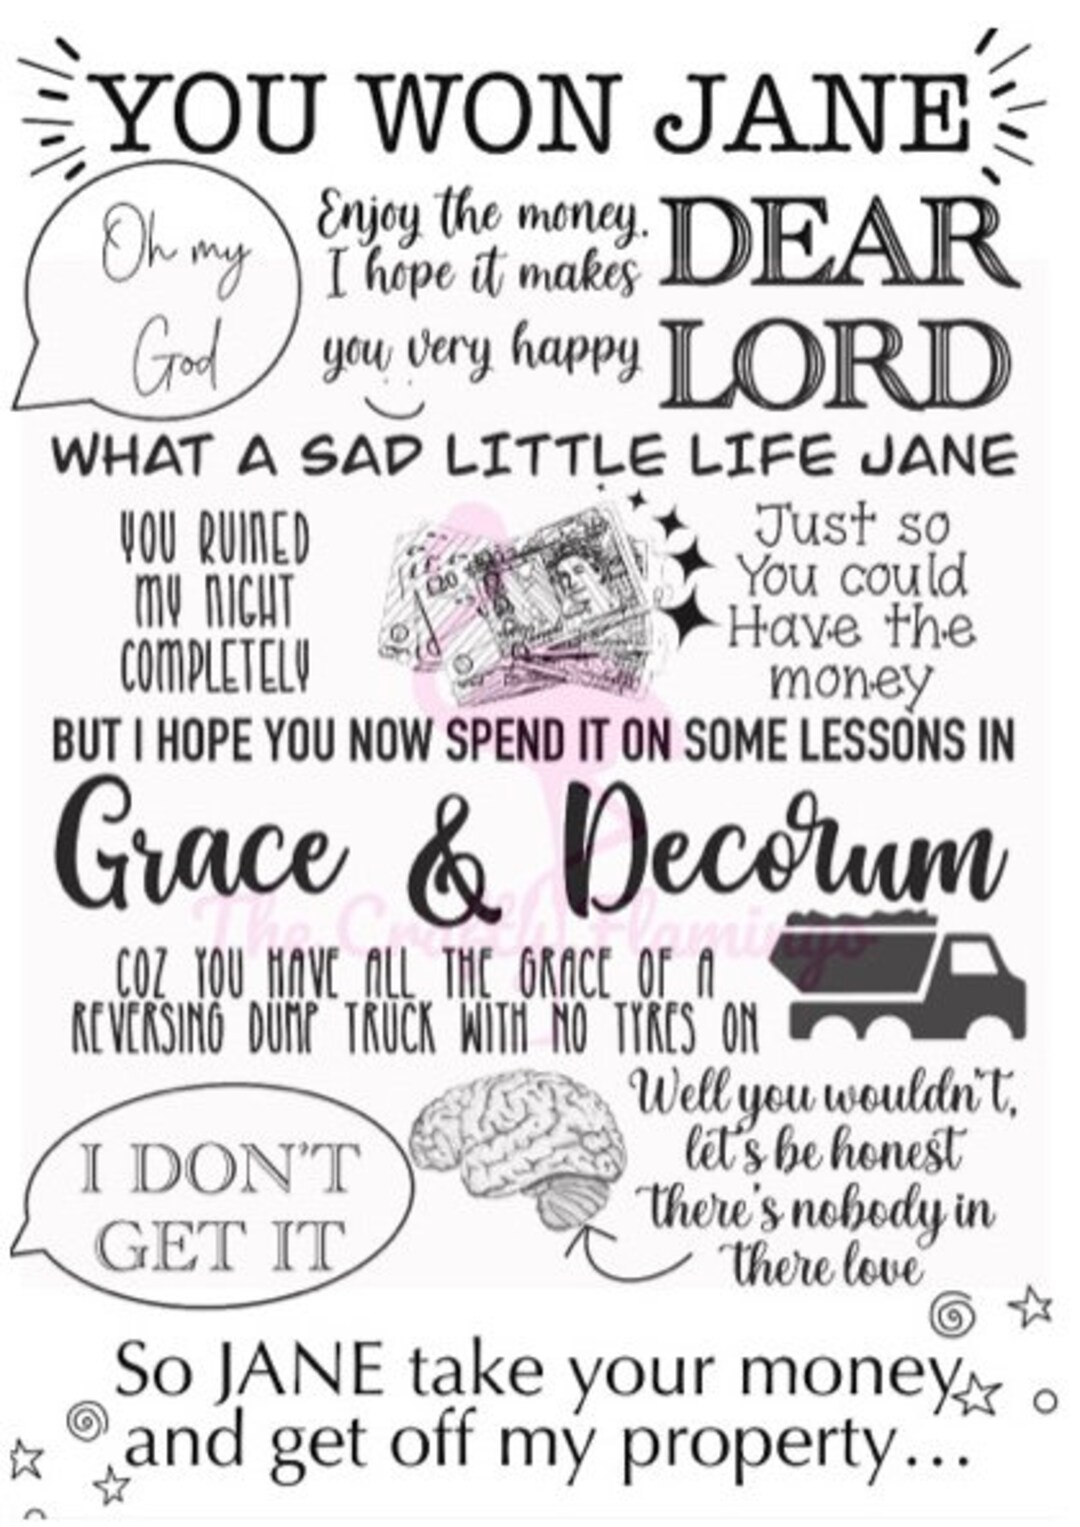 YOU WON JANE
Oh my
God
Enjoy the money.
I hope it makes
you very happy
DEAR
LORD
WHAT A SAD LITTLE LIFE JANE
YOU RUINED
MY NIGHT
COMPLETELY
£20
Just so
You could
Have the
money
BUT I HOPE YOU NOW SPEND IT ON SOME LESSONS IN
Grace & Decorum
The Crafty Flamingo
COZ YOU HAVE ALL THE GRACE OF A
REVERSING DUMP TRUCK WITH NO TYRES ON
I DON'T
GET IT
Well you wouldn't,
let's be honest
there's nobody in
there love
So JANE take your money
and get off my property...